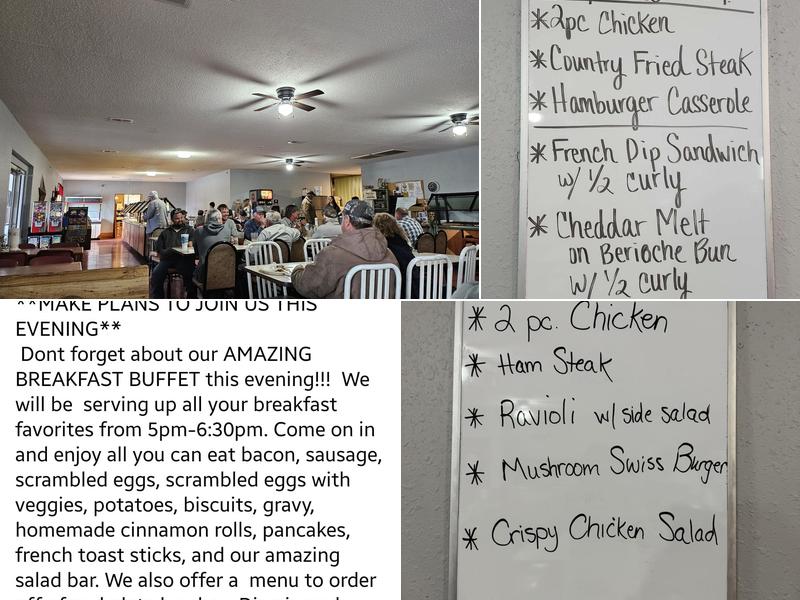 *2pc Chicken
*Country Fried Steak
*Hamburger Casserole
*French Dip Sandwich
w/ 1/2 curly
*Cheddar Melt
on Berioche Bun
w/ 1/2 curly
**MAKE PLANS TO JOIN US THIS
EVENING**
Dont forget about our AMAZING
BREAKFAST BUFFET this evening!!! We
will be serving up all your breakfast
favorites from 5pm-6:30pm. Come on in
and enjoy all you can eat bacon, sausage,
scrambled eggs, scrambled eggs with
veggies, potatoes, biscuits, gravy,
homemade cinnamon rolls, pancakes,
french toast sticks, and our amazing
salad bar. We also offer a menu to order
* 2 pc. Chicken
* Ham Steak
* Ravioli w/ side salad
* Mushroom Swiss Burger
* Crispy Chicken Salad